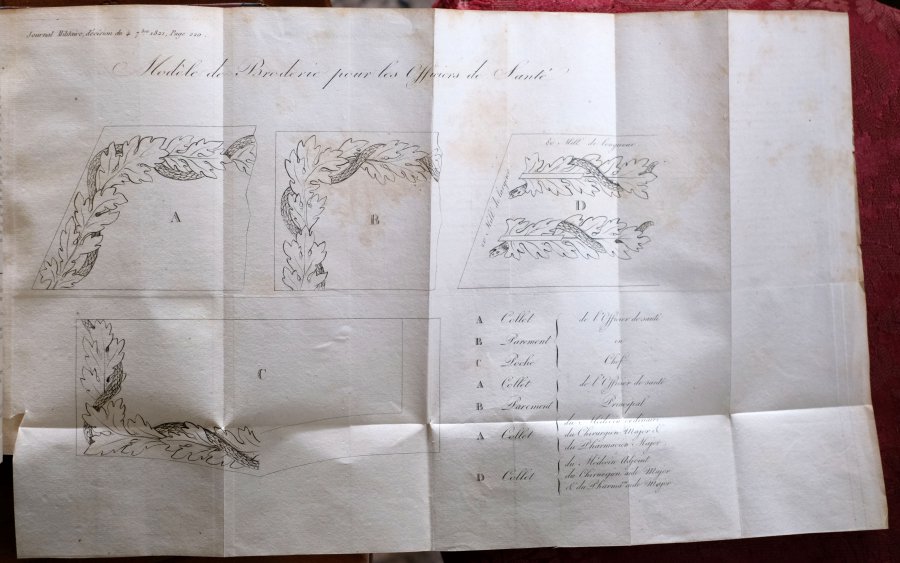 Journal Militaire, décision du 4 7.bre 1821, Page 220.
Modèle de Broderie pour les Officiers de Santé
A
B
60 Mill. de longueur
Mill. de largeur
D
C
A Collet de l'Officier de santé
B Parement en
C Poche Chef
A Collet de l'Officier de santé
B Parement Principal
A Collet du Médecin ordinaire
du Chirurgien Major &
du Pharmacien Major
D Collet du Médecin Adjoint
du Chirurgien aide Major
& du Pharm.en aide Major